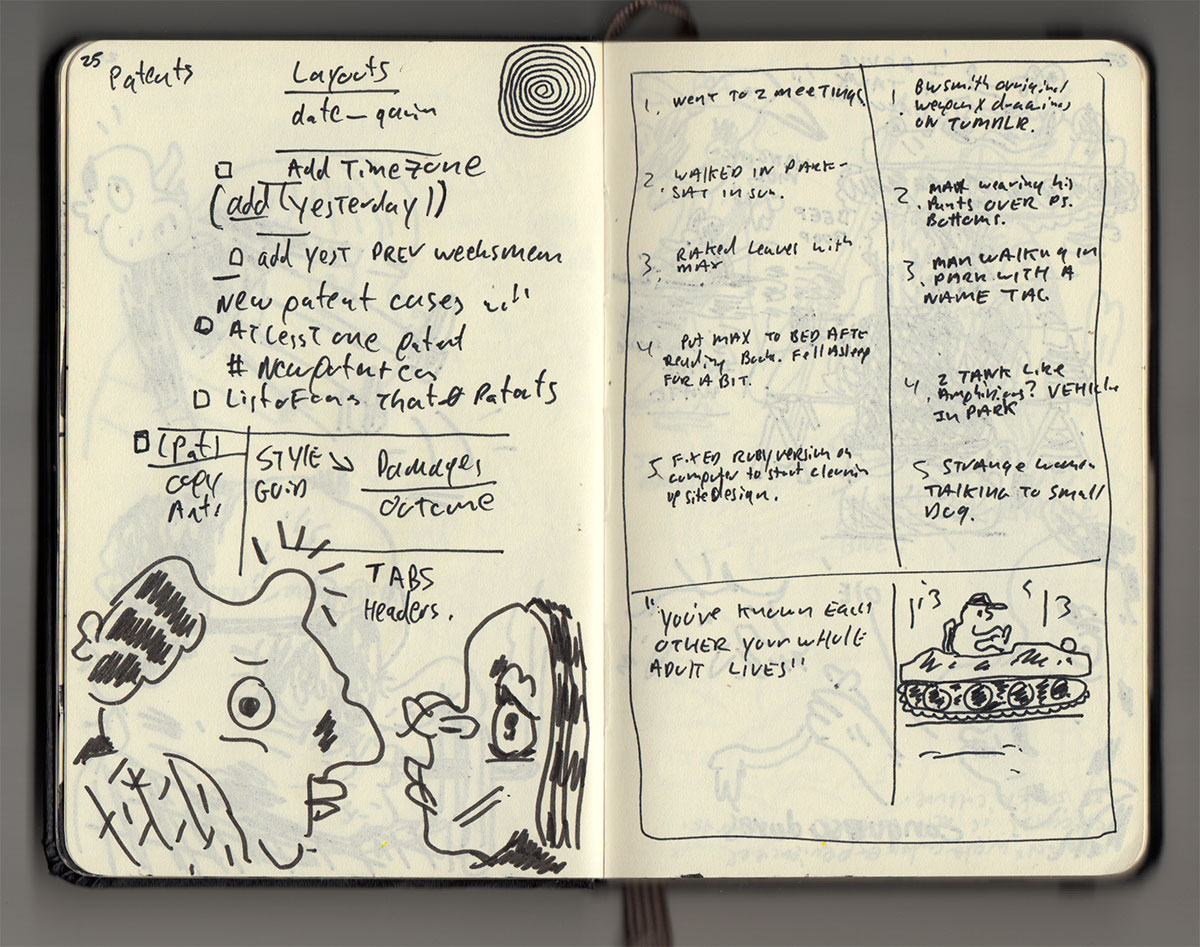 25
Patents
Layouts
date – again
Add Timezone
(add (yesterday))
add yest PREV weeksmem
New patent cases
At lesst one patent
# New patent ca
List of Patents
(Pat)
copy
STYLE
GUID
Damages
outcome
TABS
Headers.
1. WENT TO 2 MEETINGS
2. WALKED IN PARK –
SAT IN SUN.
3. RAKED Leaves with
MAX
4. PUT MAX TO BED AFTE
Reading Book. Fell Asleep
FOR A BIT.
5. FIXED RUBY version on
computer to start cleanin
up site Design.
1. BWSmith original
weapon X drawings
ON TUMBLR.
2. MAX wearing his
Pants OVER PJ.
Bottoms.
3. MAN WALKING IN
PARK WITH A
NAME TAG.
4. 2 TANK LIKE
Amphibious? VEHICLE
IN PARK
5 STRANGE woman
TALKING TO SMALL
DOG.
"YOU'VE KNOWN EACH
OTHER YOUR WHOLE
ADULT LIVES"